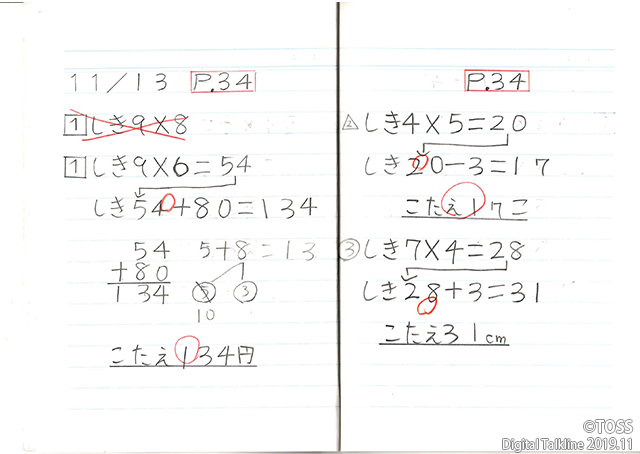 11/13 P.34
1 しき9×8
1 しき9×6=54
しき54+80=134
54 5+8=13
+80
134 5 3
10
こたえ134円
P.34
2 しき4×5=20
しき20-3=17
こたえ17こ
3 しき7×4=28
しき28+3=31
こたえ31cm
©TOSS
Digital Talkline 2019.11